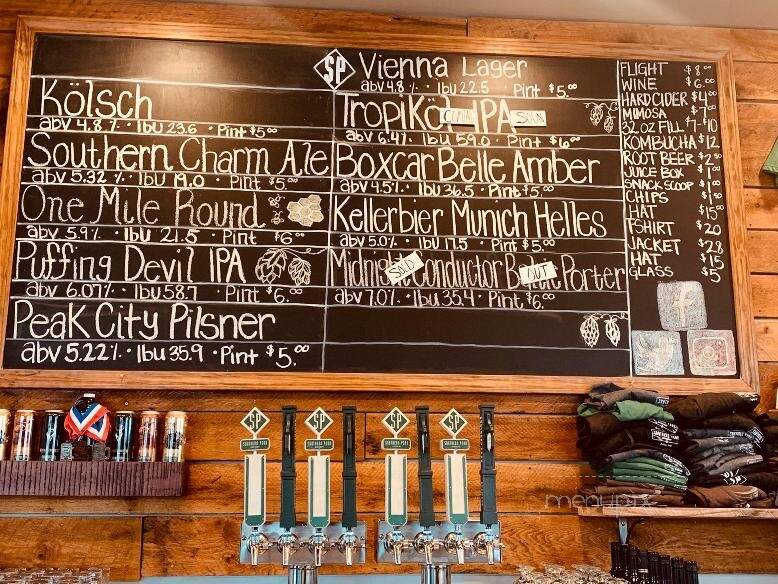 Kölsch
abv 4.8% · Ibu 23.6 · Pint $5.00
Southern Charm Ale
abv 5.32% · Ibu 19.0 · Pint $5.00
One Mile Round
abv 5.9% · Ibu 21.5 · Pint $6.00
Puffing Devil IPA
abv 6.07% · Ibu 58.7 · Pint $6.00
Peak City Pilsner
abv 5.22% · Ibu 35.9 · Pint $5.00
SP Vienna Lager
abv 4.8% · Ibu 22.5 · Pint $5.00
TropiKöl IPA
COMING SOON
abv 6.4% · Ibu 59.0 · Pint $6.00
Boxcar Belle Amber
abv 4.5% · Ibu 36.5 · Pint $5.00
Kellerbier Munich Helles
abv 5.0% · Ibu 17.5 · Pint $5.00
Midnight Conductor Baltic Porter
SOLD OUT
abv 7.0% · Ibu 35.4 · Pint $6.00
FLIGHT $8.00
WINE $6.00
HARD CIDER $4.00
MIMOSA $7.00
32 OZ FILL $7-$10
KOMBUCHA $12
ROOT BEER $2.50
JUICE BOX $1.00
SNACK SCOOP $1.00
CHIPS $1.50
HAT $15.00
TSHIRT $20
JACKET $28
HAT $15
GLASS $5
SP
SP
SP
SP
menupix